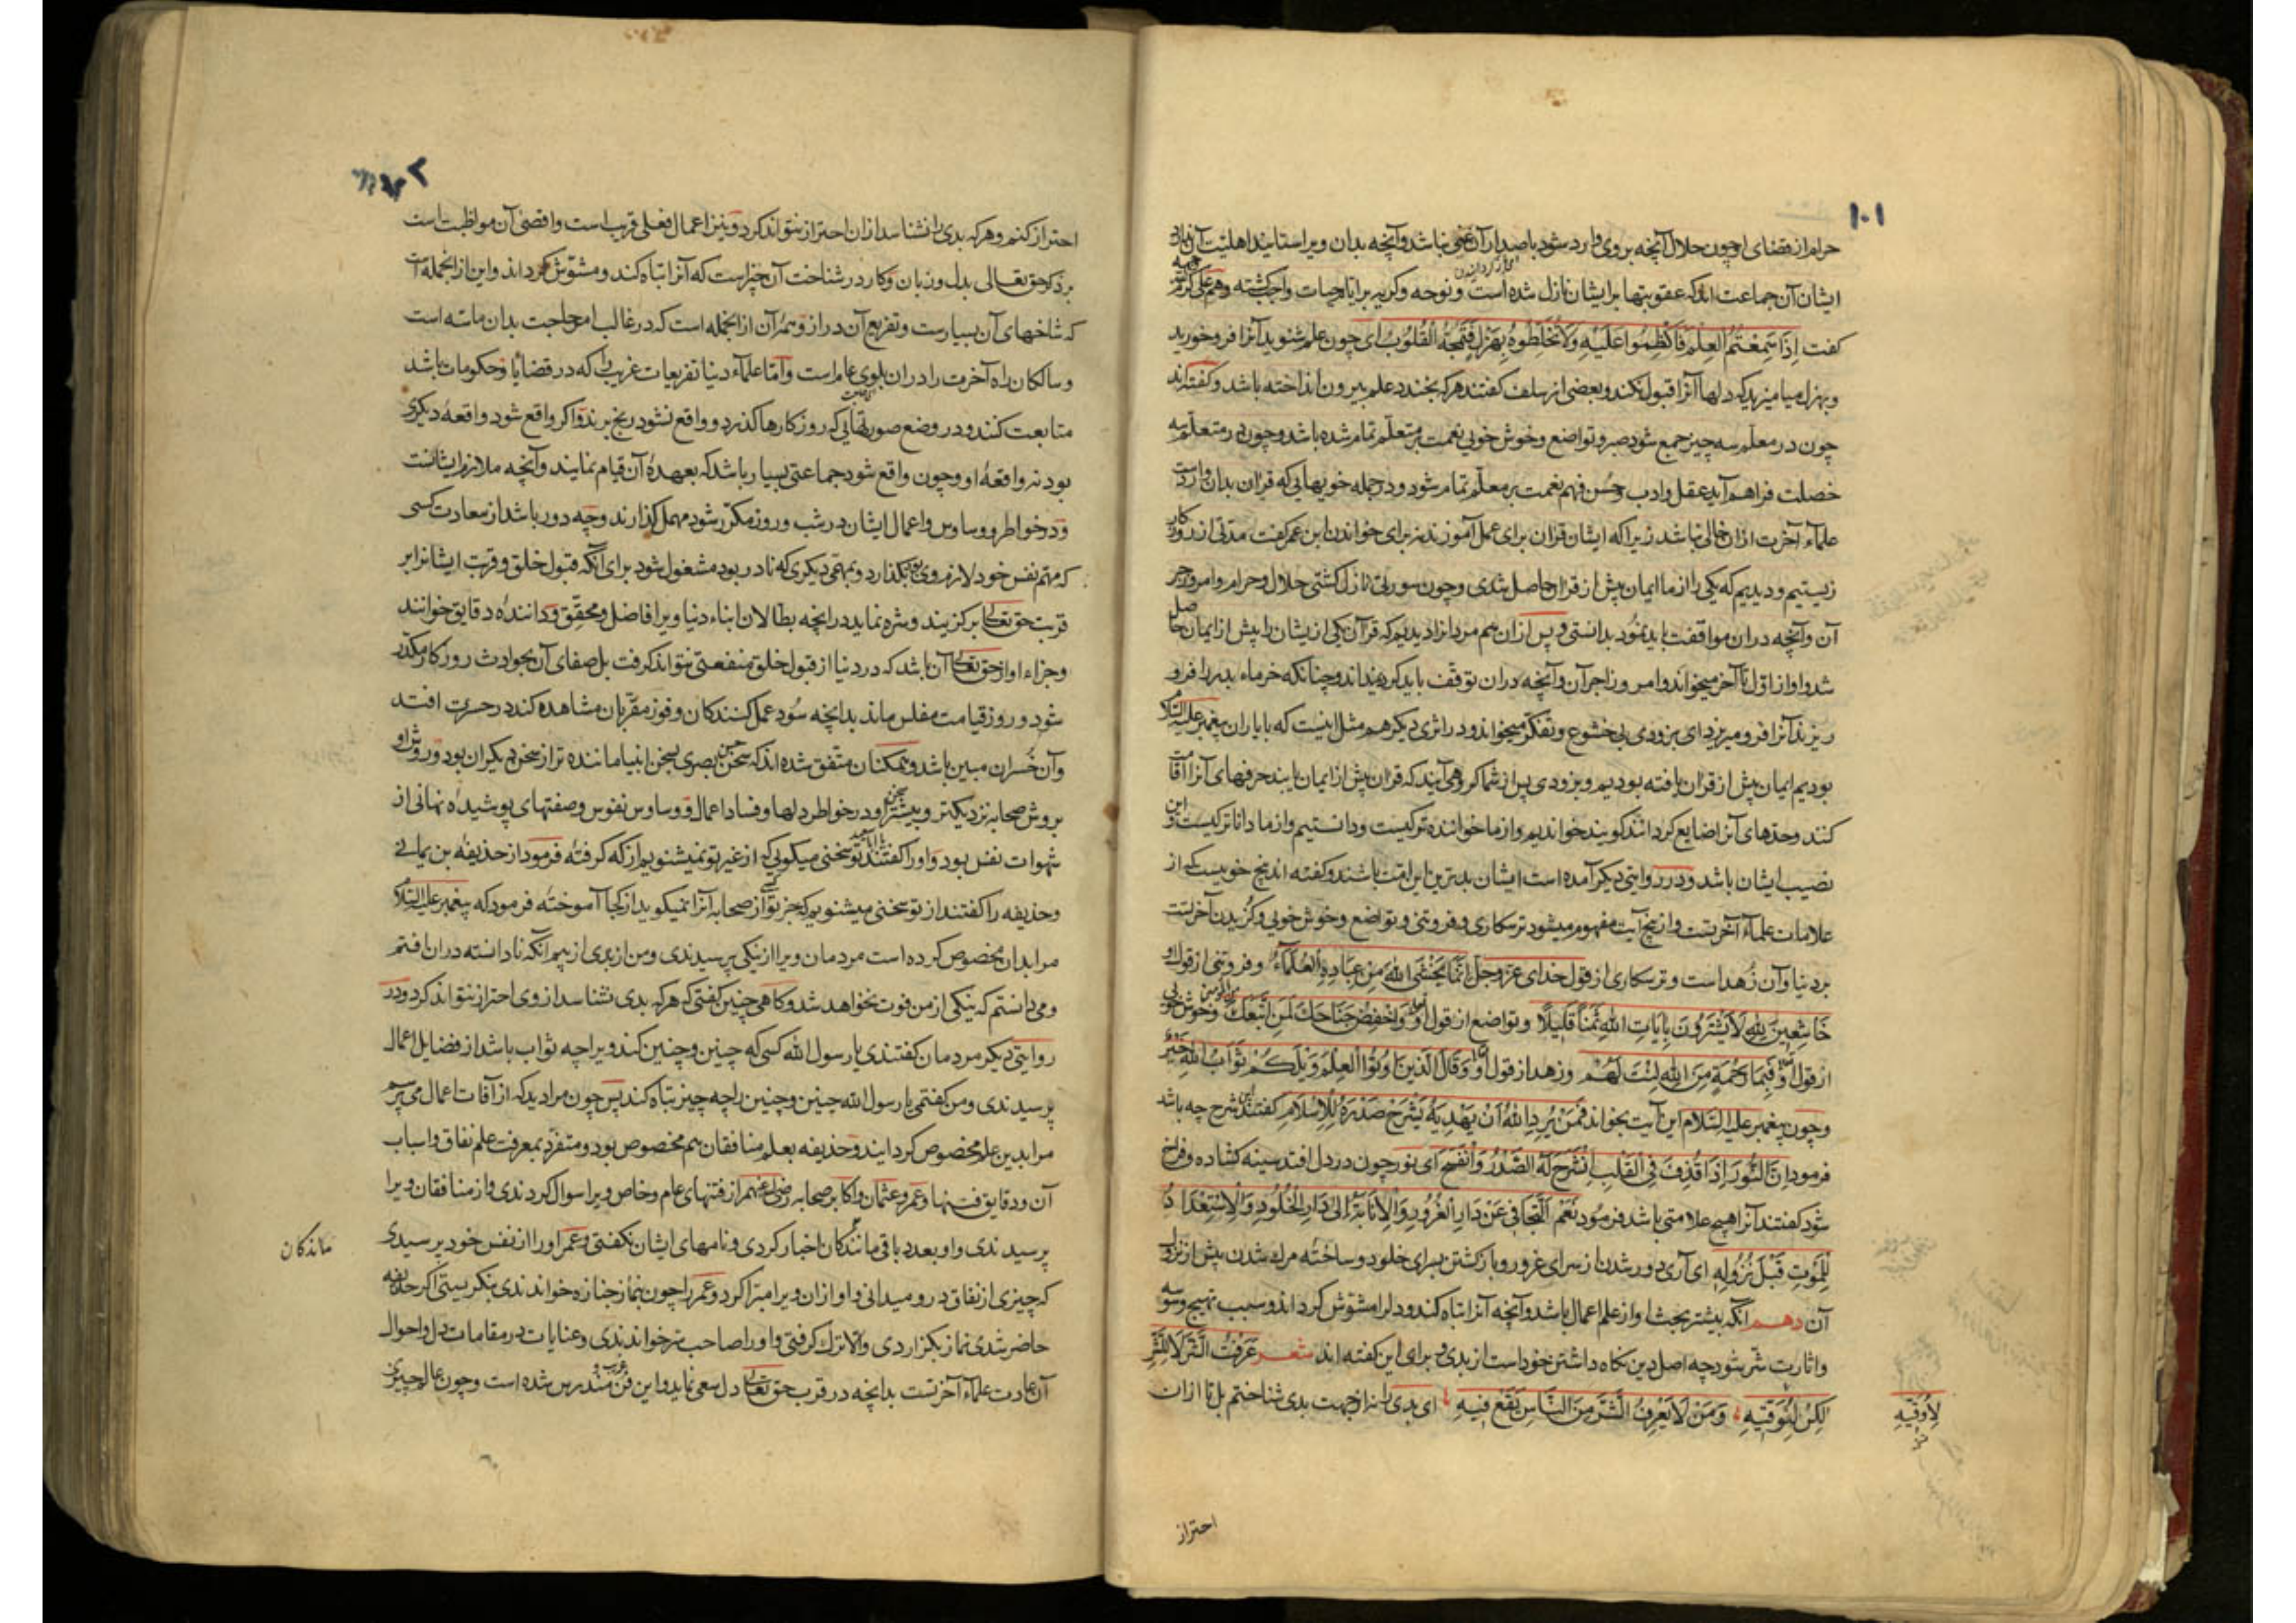 ۱۰۱
حرام از قضای او چون حلال آنچه بر وی وارد شود باصدار آن غنی نباشد و آنچه بدان ویرا ستایند اهلیت آن ندارد
ایشان آن جماعت اند که عقوبتها بر ایشان نازل شده است و نوحه و کریه بر ایام حیات واجب کشته و هم علی کرم الله وجهه
کفت اِذَا سَمِعْتُمُ العِلْمَ فَاکْظِمُوا عَلَیْهِ وَلَا تُخَلِّطُوهُ بِهَزْلٍ فَتَمُجَّهُ الْقُلُوبُ ای چون علم شنوید آنرا فرو خورید
و بهزل میامیزید که دلها آنرا قبول نکند و بعضی از سلف کفتند هر که بخندد علم بیرون انداخته باشد و کفته‌اند
چون در معلّم سه چیز جمع شود صبر و تواضع و خوش خویی نعمت بر متعلّم تمام شده باشد و چون در متعلّم سه
خصلت فراهم آید عقل و ادب و حُسن فهم نعمت بر معلّم تمام شود و در جمله خویهایی که قران بدان وارد است
علمآء آخرت ازان خالی نباشد زیرا که ایشان قران برای عمل آموزند نه برای خواندن ابن عمر کفت مدتی از روزکار
زیستیم و دیدیم که یکی را از ما ایمان پیش از قران حاصل شدی و چون سورتی نازل کشتی حلال و حرام و امر و زجر
آن و آنچه دران مواقفت باید نمُود بدانستی و پس ازان هم مردانرا دیدیم که قرآن یکی از یشان را پیش از ایمان حاصل
شد و او از اوّل تا آخر میخواند و امر و زاجر آن و آنچه دران توقّف باید کرد نمیداند و چنانکه خرماء بد بر را فرو
ریزند آنرا فرو میریزد ای بزودی بی خشوع و تفکّر میخواند و در اثری دیکر هم مثل اینست که ما یاران پیغمبر علیه السّلام
بودیم ایمان پیش از قران یافته بودیم و بزودی پس از شما کروهی آیند که قران پیش از ایمان یابند حرفهای آنرا اقامت
کنند و حدهای آنرا ضایع کردانند کویند خواندیم و از ما خواننده تر کیست و دانستیم و از ما داناتر کیست و این
نصیب ایشان باشد و در روایتی دیکر آمده است ایشان بدترین این امّت باشند و کفته اند پنج خویست که از
علامات علمآء آخرتست و از پنج آیت مفهوم میشود ترسکاری و فروتنی و تواضع و خوش خویی و کُزیدن آخرت
بر دنیا و آن زُهد است و ترسکاری از قول خدای عزّوجلّ اِنَّمَا یَخْشَی اللهَ مِنْ عِبَادِهِ الْعُلَمَآءُ و فروتنی از قول او
خَاشِعِینَ لِلّٰهِ لَا یَشْتَرُونَ بِآیَاتِ اللهِ ثَمَناً قَلِیلًا و تواضع از قول او وَاخْفِضْ جَنَاحَكَ لِمَنِ اتَّبَعَكَ و خوش خویی
از قول او فَبِمَا رَحْمَةٍ مِنَ اللهِ لِنْتَ لَهُمْ و زهد از قول او وَقَالَ الَّذِینَ اُوتُوا الْعِلْمَ وَیْلَکُمْ ثَوَابُ اللهِ خَیْرٌ
و چون پیغمبر علیه السّلام این آیت بخواند فَمَنْ یُرِدِ اللهُ اَنْ یَهْدِیَهُ یَشْرَحْ صَدْرَهُ لِلْاِسْلَامِ کفتند این شرح چه باشد
فرمود اِنَّ النُّورَ اِذَا قُذِفَ فِی الْقَلْبِ انْشَرَحَ لَهُ الصَّدْرُ وَانْفَسَحَ ای نور چون در دل افتد سینه کشاده و فراخ
شود کفتند آنرا هیچ علامتی باشد فرمُود نَعَمْ اَلتَّجَافِی عَنْ دَارِ الْغُرُورِ وَالْاِنَابَةُ اِلَی دَارِ الْخُلُودِ وَالْاِسْتِعْدَادُ
لِلْمَوْتِ قَبْلَ نُزُولِهِ ای آری دور شدن از سرای غرور و بازکشتن بسرای خلود و ساخته مرك شدن پیش از نزول
آن دهم آنکه بیشتر بحث او از علم اعمال باشد و آنچه آنرا تباه کند و دلرا مشوّش کرداند و سبب تهییج وسوسه
و اثارت شرّ شود چه اصل دین نکاه داشتن خود است از بدی و برای این کفته اند شعر عَرَفْتُ الشَّرَّ لَا لِلشَّرِّ
لٰکِنْ لِتَوَقِّیهِ وَمَنْ لَا یَعْرِفُ الشَّرَّ مِنَ النَّاسِ یَقَعْ فِیهِ ای بدی را نه از جهت بدی شناختم بل تا ازان
لِاُوَقِّیهِ
احتراز
۱۰۲
احتراز کنم و هر که بدی را نشناسد ازان احتراز نتواند کرد و نیز اعمال فعلی قریب است و اقصی آن مواظبت است
بر ذکر حق تعالی بدل و زبان و کار در شناخت آن چیز است که آنرا تباه کند و مشوّش کرداند و این از انجمله است
که شاخهای آن بسیارست و تفریع آن دراز و همه آن از انجمله است که در غالب امر حاجت بدان ماسّه است
و سالکان راه آخرت را دران بلوی عام است و امّا علمآء دنیا تفریعات غریب را که در قضایا و حکومات باشد
متابعت کنند و در وضع صورتهایی که روزکارها کذرد و واقع نشود رنج برند و اکر واقع شود واقعهٔ دیکری
بود نه واقعهٔ او و چون واقع شود جماعتی بسیار باشد که بعهدهٔ آن قیام نمایند و آنچه ملازم ایشانست
و در خواطر و وساوس و اعمال ایشان در شب و روز مکرّر شود مهمل کذارند و چه دور باشد از سعادت کسی
که مهّم نفس خود لازم وی بکذارد و بمهّمی دیکری که نادر بود مشغول شود برای آنکه قبول خلق و قربت ایشانرا بر
قربت حق تعالی بر کزیند و شره نماید در انچه بطّالان ابناء دنیا ویرا فاضل و محقّق و دانندهٔ دقایق خوانند
و جزاء او از حق تعالی آن باشد که در دنیا از قبول خلق منفعتی نتواند کرفت بل صفای آن بحوادث روزکار مکدّر
شود و روز قیامت مفلس ماند بدانچه سُود عمل کنندکان و فوز مقرّبان مشاهده کند در حسرت افتد
و آن خُسران مبین باشد و همکنان متّفق شده اند که سخن حسن بصری بسخن انبیا ماننده تر از سخن دیکران بود و روش او
بروش صحابه نزدیکتر و بیشتر سخن او در خواطر دلها و فساد اعمال و وساوس نفوس و صفتهای پوشیدهٔ نهانی از
شهوات نفس بود و اورا کفتند تو سخنی میکویی که از غیر تو نمیشنویم از که کرفتهٔ فرمود از حذیفه بن یمانی
و حذیفه را کفتند از تو سخنی میشنویم که جز تو از صحابه آنرا نمیکوید از کجا آموختهٔ فرمود که پیغمبر علیه السّلام
مرا بدان مخصوص کرده است مردمان ویرا از نیکی پرسیدندی و من از بدی از بیم آنکه نادانسته دران افتم
و می دانستم که نیکی از من فوت نخواهد شد و کاهی چنین کفتی که هر که بدی نشناسد از وی احتراز نتواند کرد و در
روایتی دیکر مردمان کفتندی یا رسول الله کسی که چنین و چنین کند ویرا چه ثواب باشد از فضایل اعمال
پرسیدندی و من کفتمی یا رسول الله چنین و چنین را چه چیز تباه کند پس چون مرا دید که از آفات اعمال می پرسم
مرا بدین علم مخصوص کردانید و حذیفه بعلم منافقان هم مخصوص بود و متفرّد بمعرفت علم نفاق و اسباب
آن و دقایق فتنها و عمر و عثمان و اکابر صحابه رضی الله عنهم از فتنهای عام و خاص ویرا سوال کردندی و از منافقان ویرا
پرسیدندی و او بعدد باقی ماندکان اخبار کردی و نامهای ایشان نکفتی و عمر اورا از نفس خود پرسیدی
ماندکان
که چیزی از نفاق در و میدانی و او ازان ویرا مبرّا کرد و عمر را چون بنماز جنازه خواندندی بنکریستی اکر حذیفه
حاضر شدی نماز بکزاردی و الّا ترك کرفتی و اورا صاحب سر خواندندی و عنایات در مقامات دل و احوال
آن عادت علمآء آخرتست بدانچه در قرب حق تعالی دل سعی نماید و این فن مندرس شده است و چون عالم چیزی